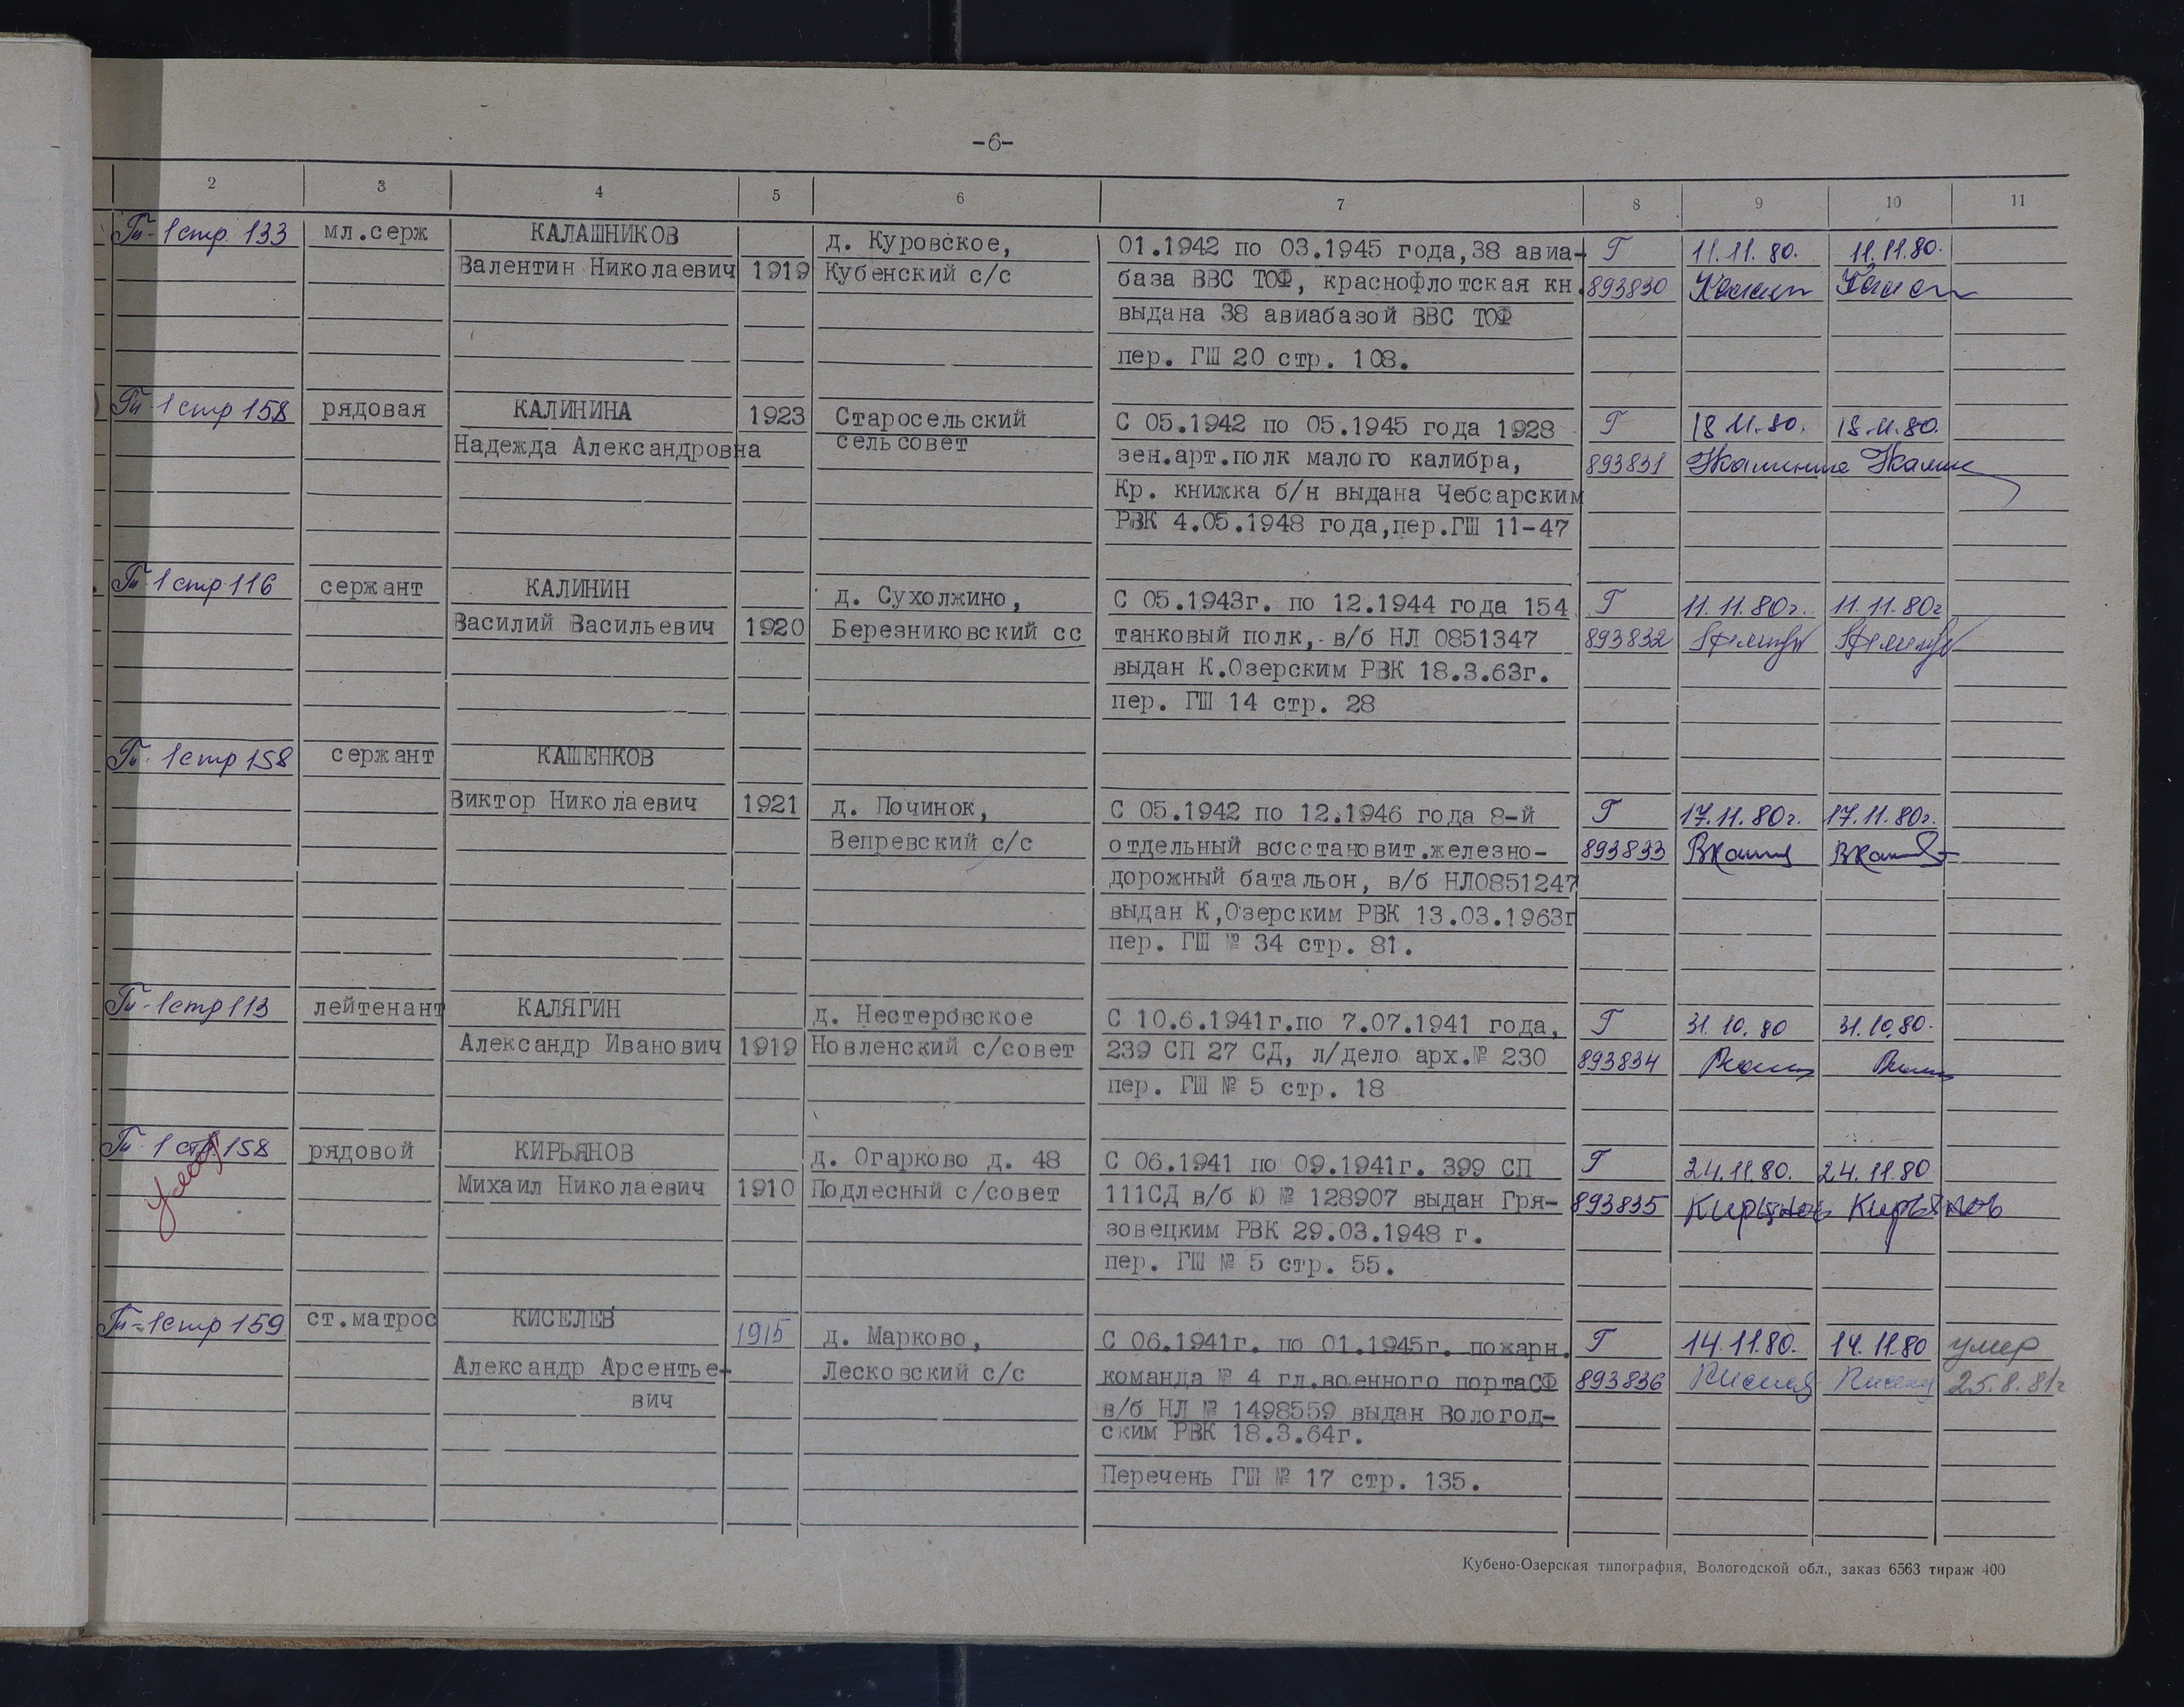 -6-
2 3 4 5 6 7 8 9 10 11
Гш-1 стр. 133 мл.серж КАЛАШНИКОВ д. Куровское, 01.1942 по 03.1945 года,38 авиа- Г 11.11.80. 11.11.80.
Валентин Николаевич 1919 Кубенский с/с база ВВС ТОФ, краснофлотская кн. 893830
выдана 38 авиабазой ВВС ТОФ
пер. ГШ 20 стр. 108.
Гш-1 стр 158 рядовая КАЛИНИНА 1923 Старосельский С 05.1942 по 05.1945 года 1928 Г 18.11.80. 18.11.80.
Надежда Александровна сельсовет зен.арт.полк малого калибра, 893831
Кр. книжка б/н выдана Чебсарским
РВК 4.05.1948 года,пер.ГШ 11-47
Гш-1 стр 116 сержант КАЛИНИН д. Сухолжино, С 05.1943г. по 12.1944 года 154 Г 11.11.80г. 11.11.80г
Василий Васильевич 1920 Березниковский сс танковый полк, в/б НЛ 0851347 893832
выдан К.Озерским РВК 18.3.63г.
пер. ГШ 14 стр. 28
Гш-1 стр 158 сержант КАШЕНКОВ
Виктор Николаевич 1921 д. Починок, С 05.1942 по 12.1946 года 8-й Г 17.11.80г. 17.11.80г.
Вепревский с/с отдельный восстановит.железно- 893833
дорожный батальон, в/б НЛ0851247
выдан К,Озерским РВК 13.03.1963г
пер. ГШ № 34 стр. 81.
Гш-1 стр 113 лейтенант КАЛЯГИН д. Нестеровское С 10.6.1941г.по 7.07.1941 года, Г 31.10.80 31.10.80.
Александр Иванович 1919 Новленский с/совет 239 СП 27 СД, л/дело арх.№ 230 893834
пер. ГШ № 5 стр. 18
Гш-1 стр. 158 рядовой КИРЬЯНОВ д. Огарково д. 48 С 06.1941 по 09.1941г. 399 СП Г 24.11.80. 24.11.80
Михаил Николаевич 1910 Подлесный с/совет 111СД в/б Ю № 128907 выдан Гря- 893835 Кирянов Кирьянов
зовецким РВК 29.03.1948 г.
пер. ГШ № 5 стр. 55.
Гш-1 стр 159 ст.матрос КИСЕЛЕВ 1915 д. Марково, С 06.1941г. по 01.1945г. пожарн. Г 14.11.80. 14.11.80 умер
Александр Арсентье- Лесковский с/с команда № 4 гл.военного портаСФ 893836 25.8.81г
вич в/б НЛ № 1498559 выдан Вологод-
ским РВК 18.3.64г.
Перечень ГШ № 17 стр. 135.
Кубено-Озерская типография, Вологодской обл., заказ 6563 тираж 400